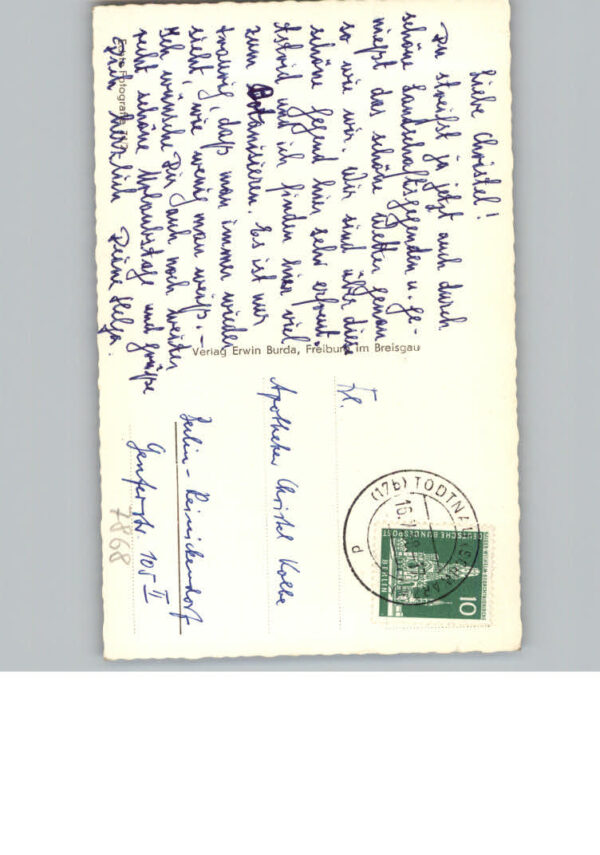 Liebe Christel!
Du streifst ja jetzt auch durch
schöne Landschaftsgegenden u. ge-
nießt das schöne Wetter genau
so wie wir. Wir sind über diese
schöne Gegend hier sehr erfreut.
Astrid und ich finden hier viel
zum Botanisieren. Es ist nur
traurig, daß man immer wieder
sieht, wie wenig man weiß. –
Ich wünsche Dir auch noch weiter
recht schöne Urlaubstage und grüße
Dich herzlich Deine Helga.
Verlag Erwin Burda, Freiburg im Breisgau
Frl.
Apotheker Christel Kolbe
Berlin-Reinickendorf
Genferstr 105 II
7868
(17b) TODTNAU
DEUTSCHE BUNDESPOST
BERLIN
10